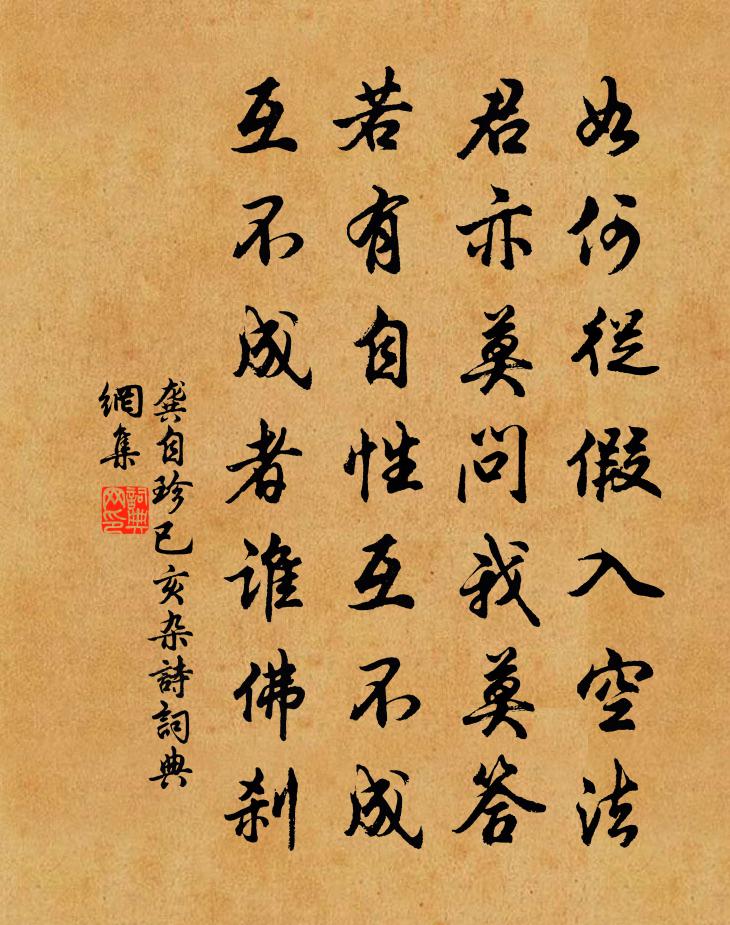 如何從假入空法
君亦莫問我莫答
若有自性互不成
互不成者誰佛刹
龔自珍己亥杂詩詞典
網集
詞典网印